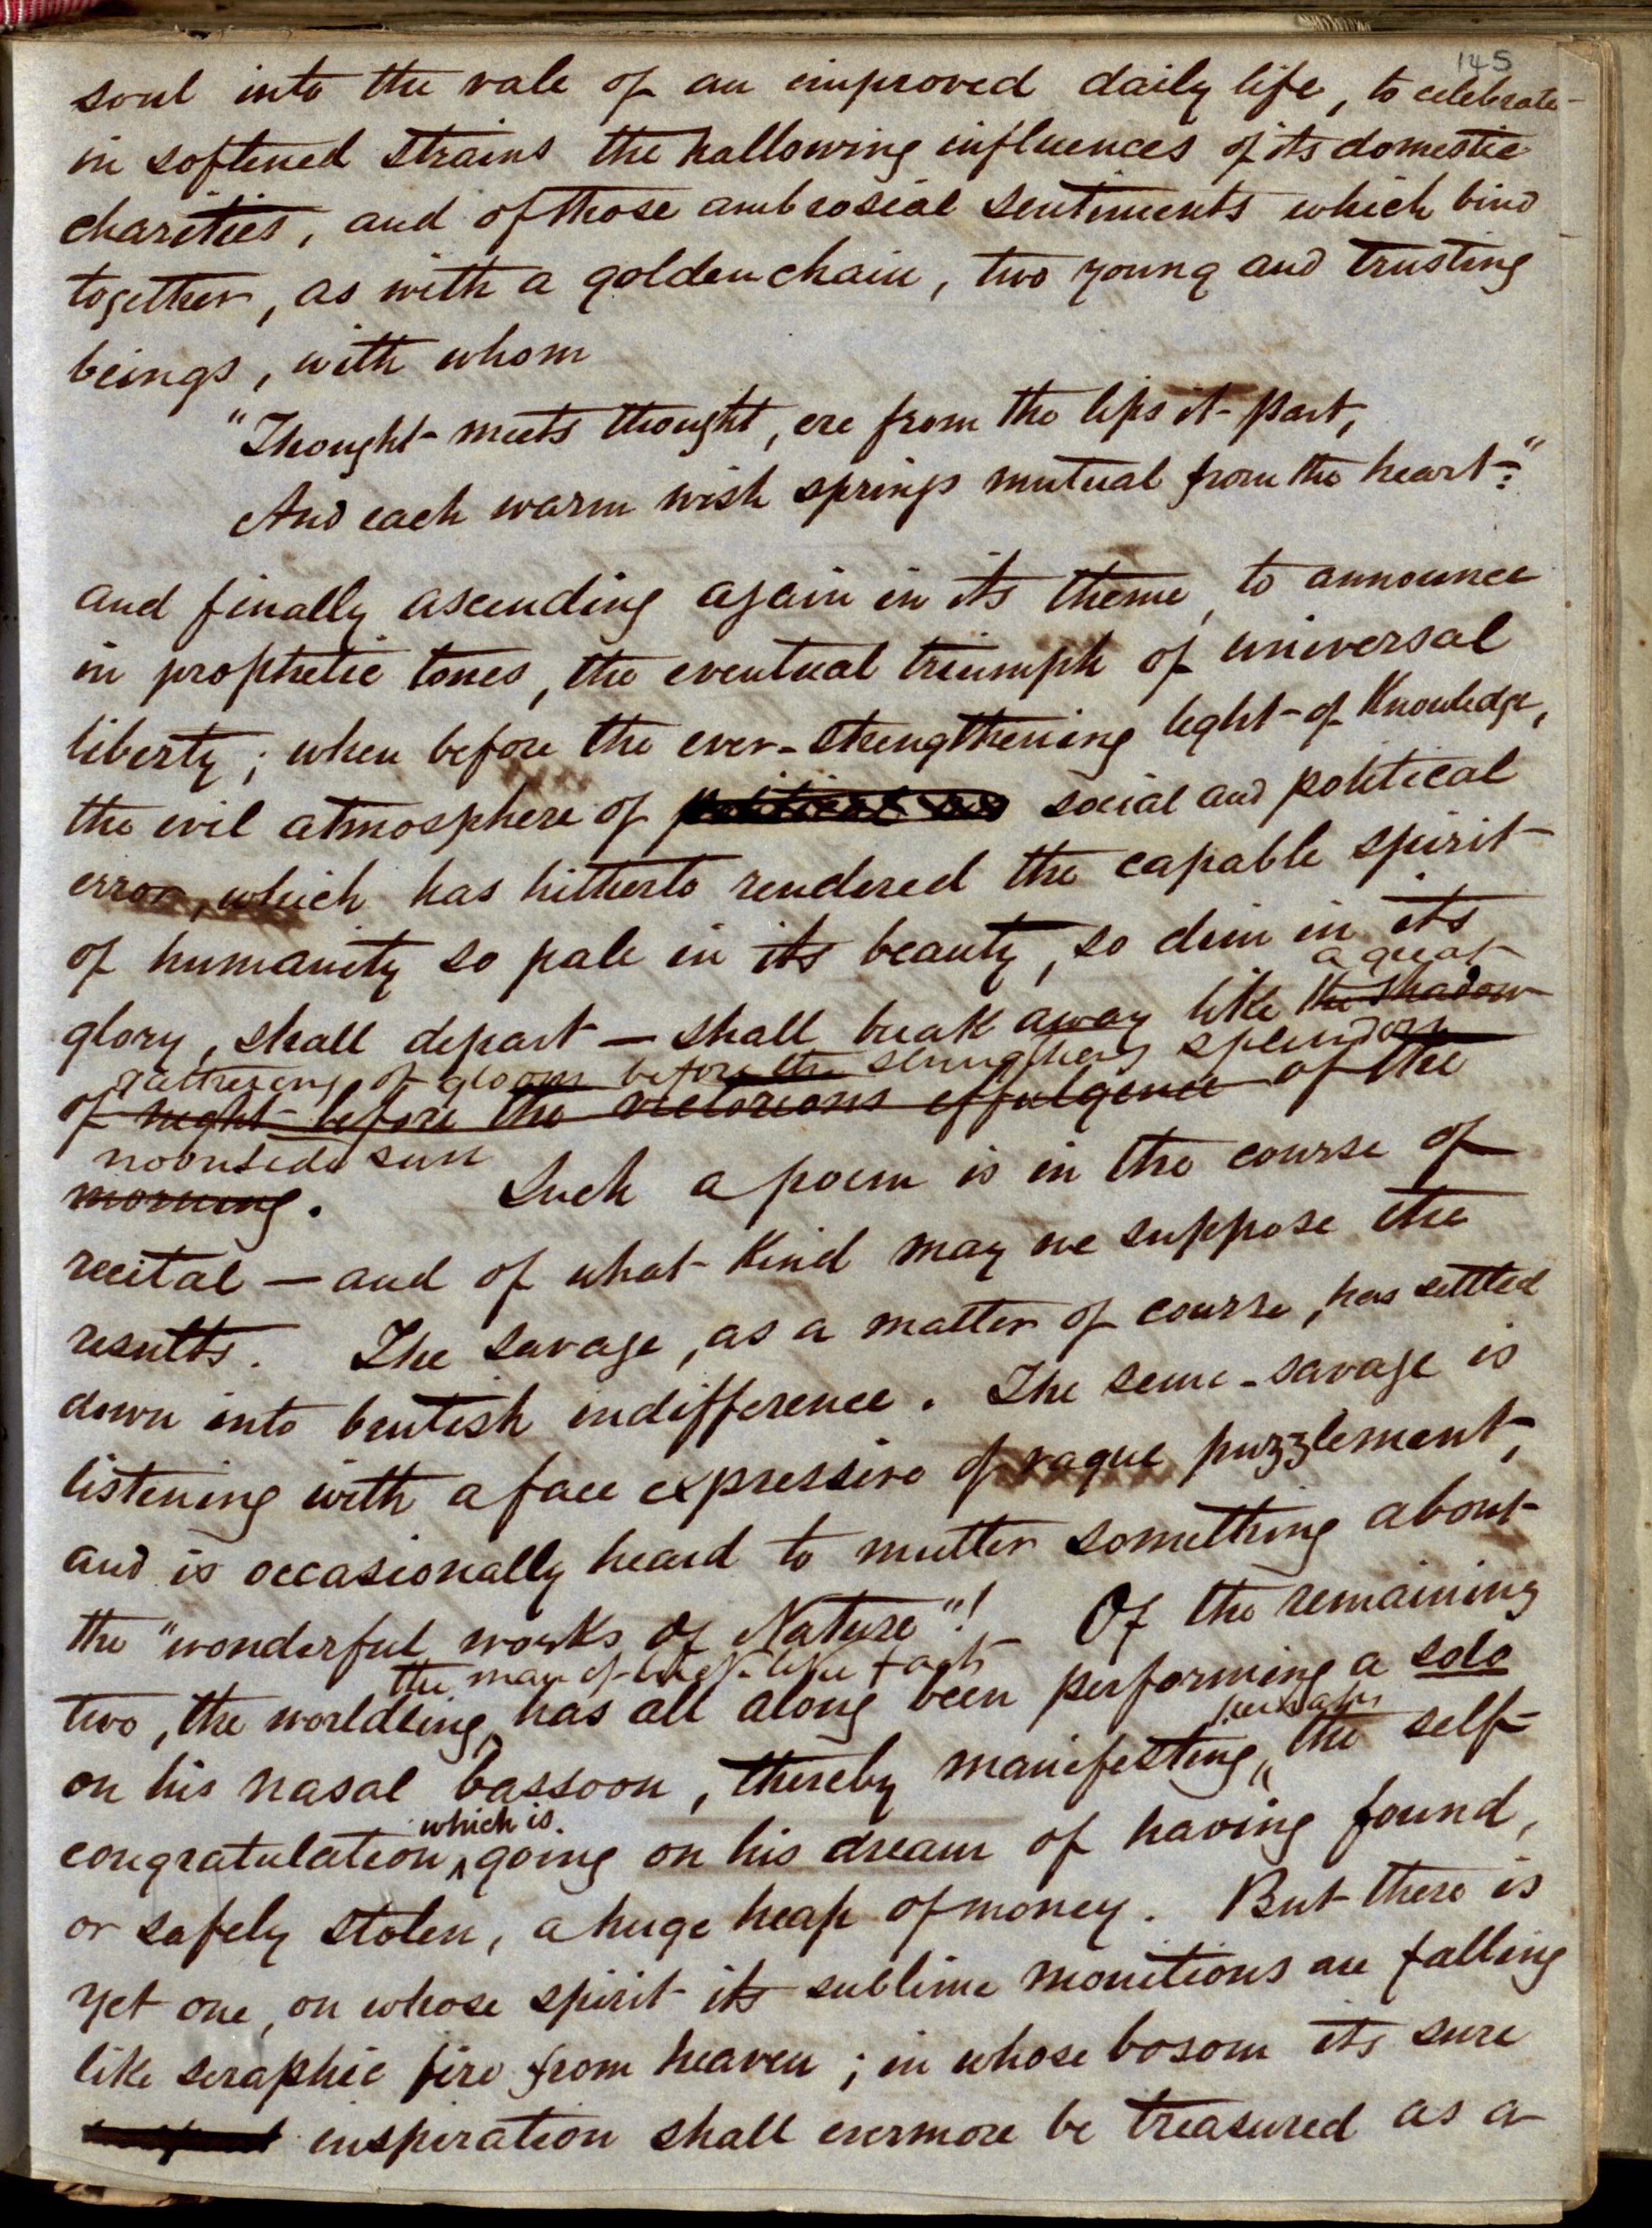 145
soul into the vale of an improved daily life, to celebrate
in softened strains the hallowing influences of its domestic
charities, and of those ambrosial sentiments which bind
together, as with a golden chain, two young and trusting
beings, with whom
"Thought meets thought, ere from the lips it part,
And each warm wish springs mutual from the heart:"
and finally ascending again in its theme, to announce
in prophetic tones, the eventual triumph of universal
liberty; when before the ever-strengthening light of Knowledge,
the evil atmosphere of political and social and political
error, which has hitherto rendered the capable spirit
of humanity so pale in its beauty, so dim in its
a great
glory, shall depart — shall break away like the shadow
gathering of gloom before the strengthening splendour
of night before the victorious effulgence of the
noontide sun
morning. Such a poem is in the course of
recital — and of what Kind may we suppose the
results. The savage, as a matter of course, has settled
down into brutish indifference. The semi-savage is
listening with a face expressive of vague puzzlement,
and is occasionally heard to mutter something about
the "wonderful works of Nature"! Of the remaining
the man of brick-like facts
two, the worldling, has all along been performing a solo
perhaps
on his nasal bassoon, thereby manifesting, the self-
which is
congratulation going on his dream of having found,
or safely stolen, a huge heap of money. But there is
yet one, on whose spirit its sublime monitions are falling
like seraphic fire from heaven; in whose bosom its sure
inspiration shall evermore be treasured as a